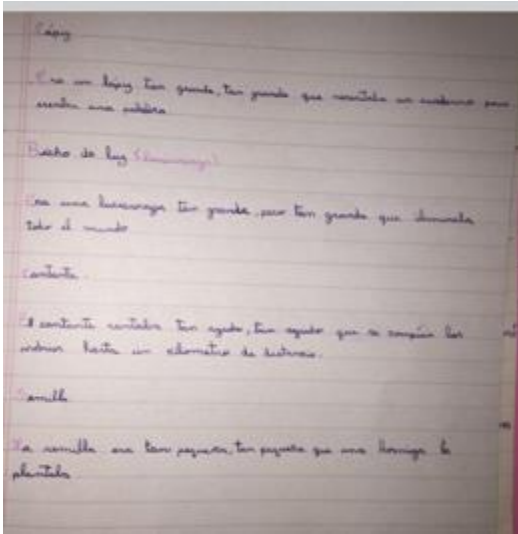 Lápiz
Era un lápiz tan grande, tan grande que necesitaba un cuaderno para
escribir una palabra
Bicho de luz (luciérnaga)
Era una luciérnaga tan grande, pero tan grande que iluminaba
todo el mundo
Cantante
El cantante cantaba tan agudo, tan agudo que se rompían los
vidrios hasta un kilometro de distancia.
Semilla
La semilla era tan pequeña, tan pequeña que una hormiga la
plantaba